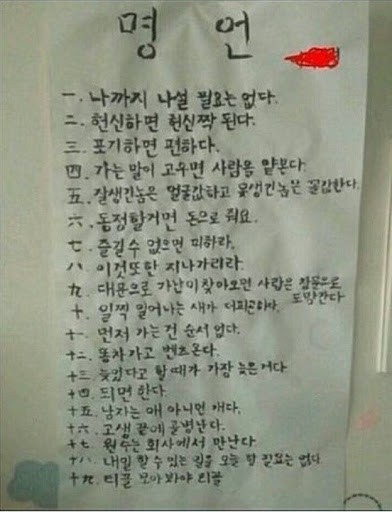 명 언
一. 나까지 나설 필요는 없다.
二. 헌신하면 헌신짝 된다.
三. 포기하면 편하다.
四. 가는 말이 고우면 사람을 얕본다.
五. 잘생긴놈은 얼굴값하고 못생긴놈은 꼴값한다.
六. 동정할거면 돈으로 줘요.
七. 즐길수 없으면 피하라.
八. 이것또한 지나가리라.
九. 대문으로 가난이찾아오면 사랑은 창문으로
도망간다
十. 일찍 일어나는 새가 더피곤하다.
十一. 먼저 가는건 순서 없다.
十二. 똥차가고 벤츠온다.
十三. 늦었다고 할때가 가장 늦은거다
十四. 되면 한다.
十五. 남자는 애 아니면 개다.
十六. 고생 끝에 골병난다.
十七. 원수는 회사에서 만난다
十八. 내일 할 수 있는 일을 오늘 할 필요는 없다
十九. 티끌 모아봐야 티끌